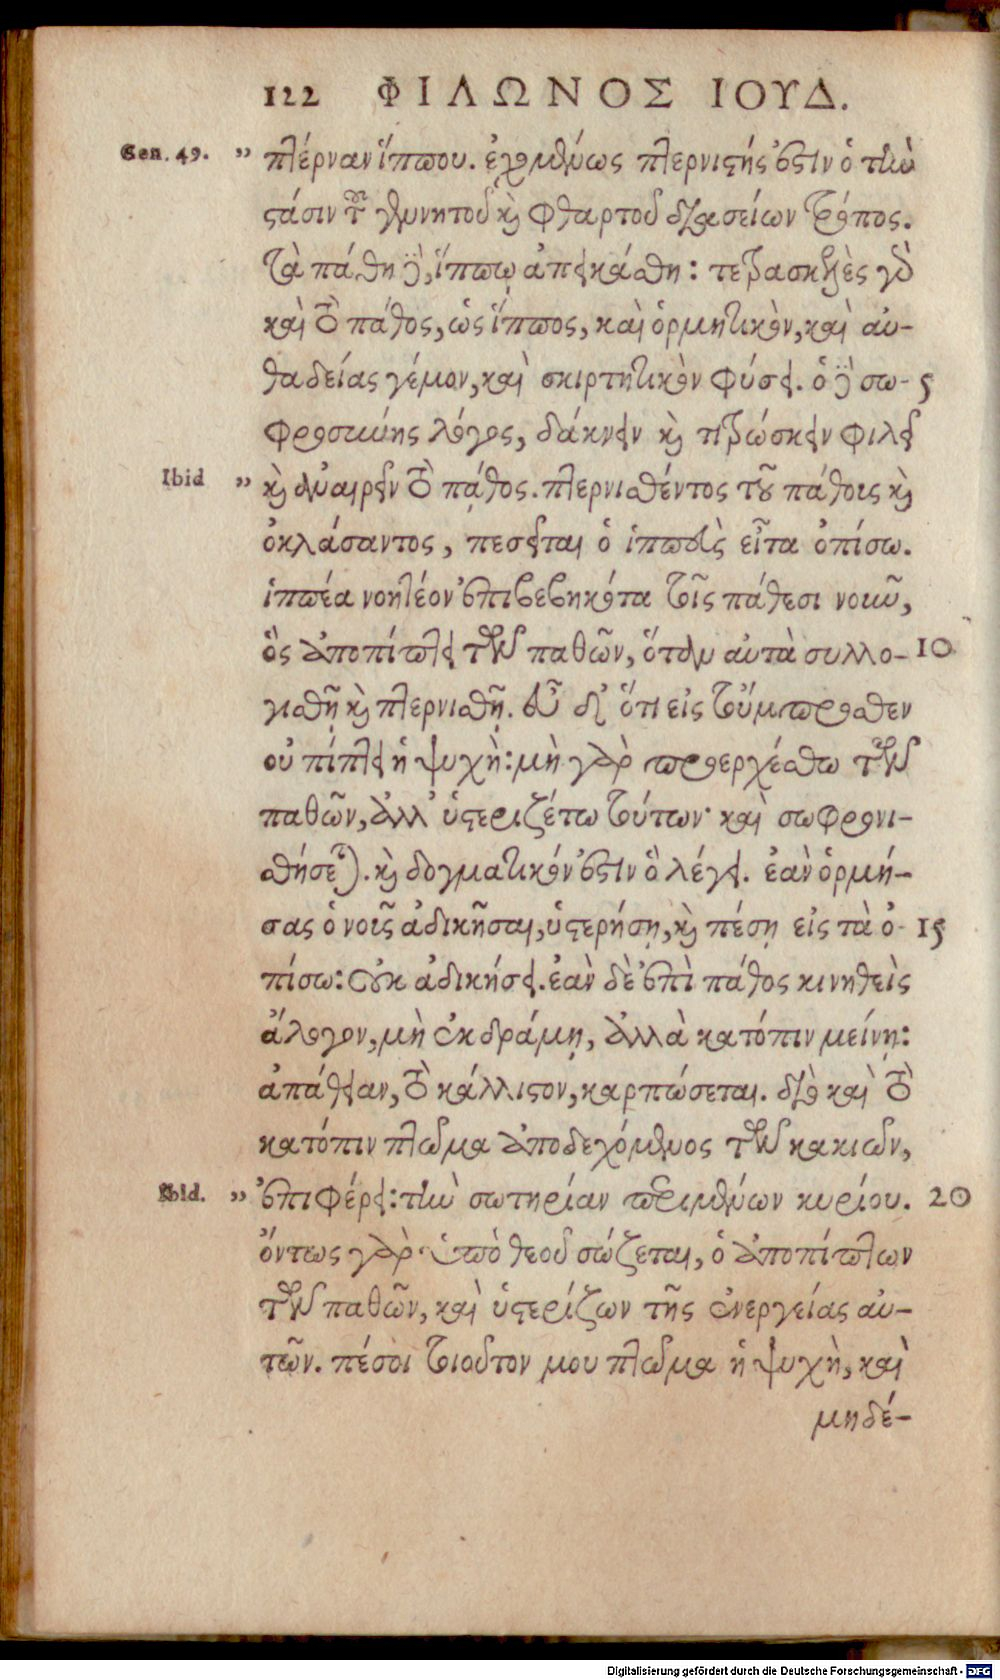 122 ΦΙΛΩΝΟΣ ΙΟΥΔ.
Gen. 49. ” πτέρναν ἵππου. ἐχομένως πτερνιστής ἐστιν ὁ τὴν
στάσιν τοῦ γενητοῦ καὶ φθαρτοῦ διασείων τρόπος.
τὰ πάθη δὲ, ἵππῳ ἀπεικάσθη: τετρασκελὲς γὸ
καὶ τὸ πάθος, ὡς ἵππος, καὶ ὁρμητικὸν, καὶ αὐ-
θαδείας γέμον, καὶ σκιρτητικὸν φύσει. ὁ δὲ σω- 5
φροσύνης λόγος, δάκνειν καὶ τιτρώσκειν φιλεῖ
Ibid ” καὶ ἀναιρεῖν τὸ πάθος. πτερνισθέντος τοῦ πάθους καὶ
ὀκλάσαντος, πεσεῖται ὁ ἱππεὺς εἶτα ὀπίσω.
ἱππέα νοητέον ἐπιβεβηκότα τοῖς πάθεσι νοῦν,
ὃς ἀποπίπτει τῶν παθῶν, ὅταν αὐτὰ συλλο- 10
γισθῇ καὶ πτερνισθῇ. εὖ δὲ ὅτι εἰς τοὔμπροσθεν
οὐ πίπτει ἡ ψυχὴ: μὴ γὰρ προερχέσθω τῶν
παθῶν, ἀλλ’ ὑστεριζέτω τούτων· καὶ σωφρονι-
σθήσεται. καὶ δογματικόν ἐστιν ὃ λέγει. ἐὰν ὁρμή-
σας ὁ νοῦς ἀδικῆσαι, ὑστερήσῃ, καὶ πέσῃ εἰς τὰ ὀ- 15
πίσω: οὐκ ἀδικήσει. ἐὰν δὲ ἐπὶ πάθος κινηθεὶς
ἄλογον, μὴ ἐκδράμῃ, ἀλλὰ κατόπιν μείνῃ:
ἀπάθειαν, τὸ κάλλιστον, καρπώσεται. διὸ καὶ τὸ
κατόπιν πτῶμα ἀποδεχόμενος τῶν κακιῶν,
Ibid. ” ἐπιφέρει: τὴν σωτηρίαν περιμένων κυρίου. 20
ὄντως γὰρ ὑπὸ θεοῦ σώζεται, ὁ ἀποπίπτων
τῶν παθῶν, καὶ ὑστερίζων τῆς ἐνεργείας αὐ-
τῶν. πέσοι τοιοῦτον μου πτῶμα ἡ ψυχὴ, καὶ
μηδέ-
Digitalisierung gefördert durch die Deutsche Forschungsgemeinschaft - DFG